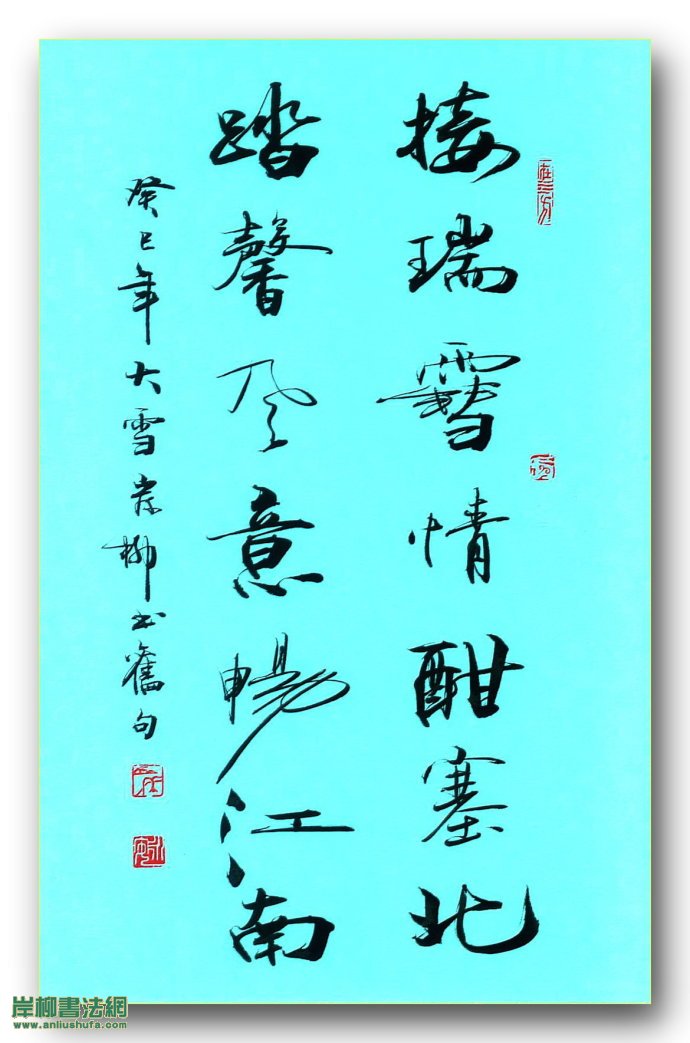 接瑞雪情酣塞北
踏馨风意畅江南
癸巳年大雪岸柳书旧句
岸柳書法網
www.anliushufa.com